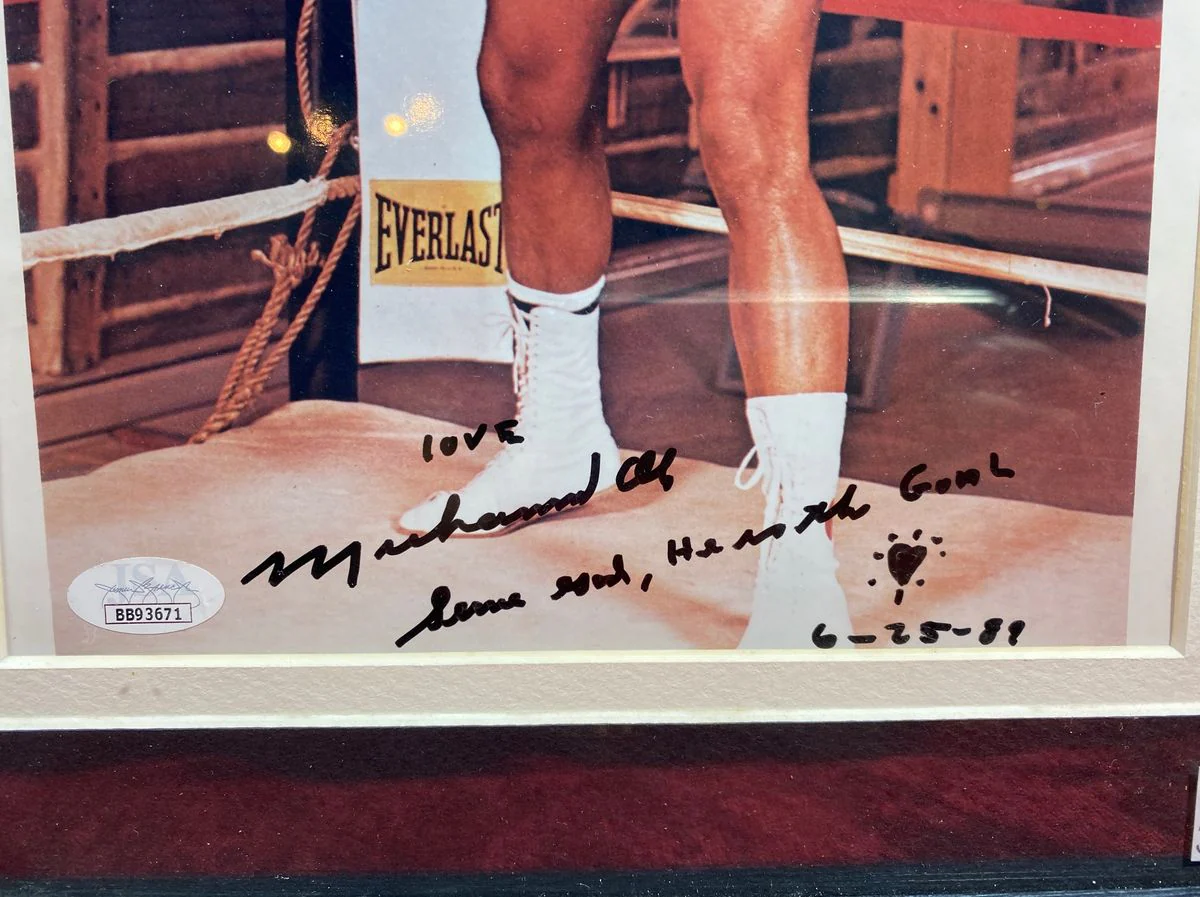 EVERLAST
love
Muhammad Ali
Serve God, He is the Goal
6-25-89
JSA
BB93671